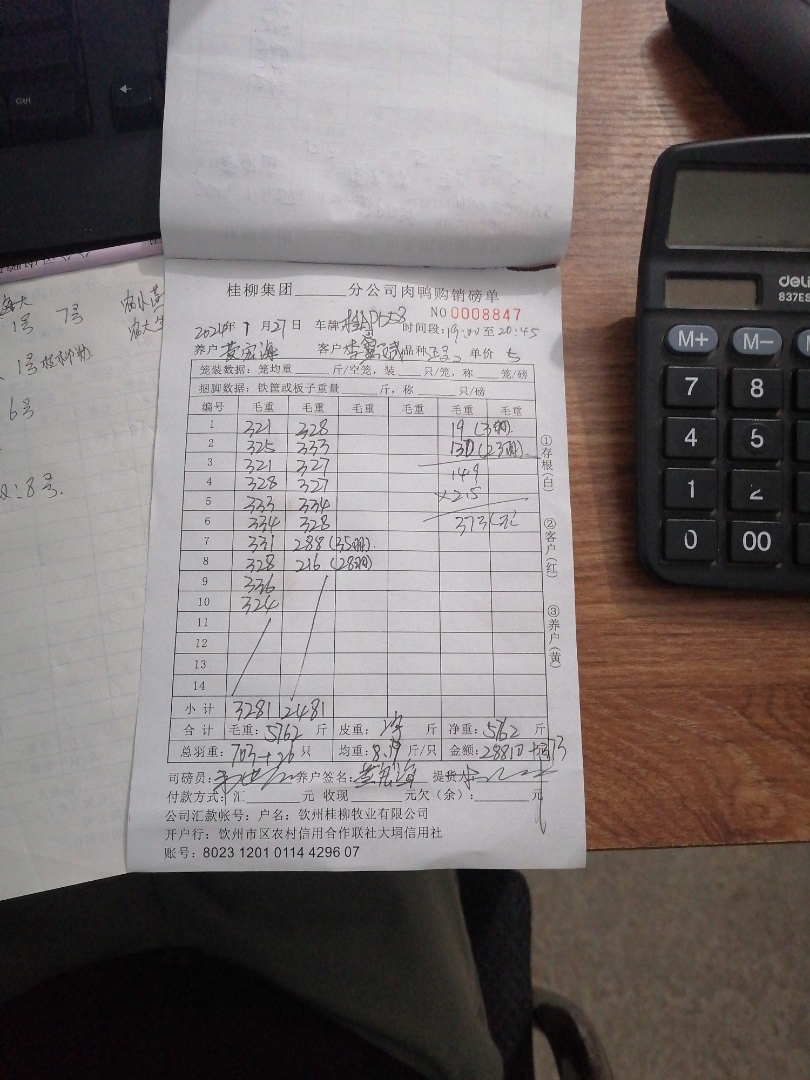 桂柳集团______分公司肉鸭购销磅单
NO 0008847
2024年 7月27日 车牌 时间段:19:00至20:45
养户 客户 品种 单价 5
笼装数据:笼均重______斤/空笼,装______只/笼,称______笼/磅
捆脚数据:铁筐或板子重量______斤,称______只/磅
编号 毛重 毛重 毛重 毛重 毛重 毛重
1 321 328 19 (3只)
2 325 333 130 (23只)
3 321 327 149
4 328 327 ×2.5
5 333 334
6 334 328 373
7 331 288 (35只)
8 328 216 (28只)
9 336
10 324
11
12
13
14
小计 3281 2481
合计 毛重:5762 斤 皮重: 斤 净重:5762 斤
总羽重:703+26 只 均重:8.19 斤/只 金额:28810+373
司磅员: 养户签名: 提货
付款方式:汇______元 收现______元欠(余):______元
公司汇款帐号:户名:钦州桂柳牧业有限公司
开户行:钦州市区农村信用合作联社大垌信用社
账号:8023 1201 0114 4296 07
①存根(白) ②客户(红) ③养户(黄)
1号 7号
1号
6号
8号
Ctrl
deli
837ES
M+ M−
7 8
4 5
1 2
0 00